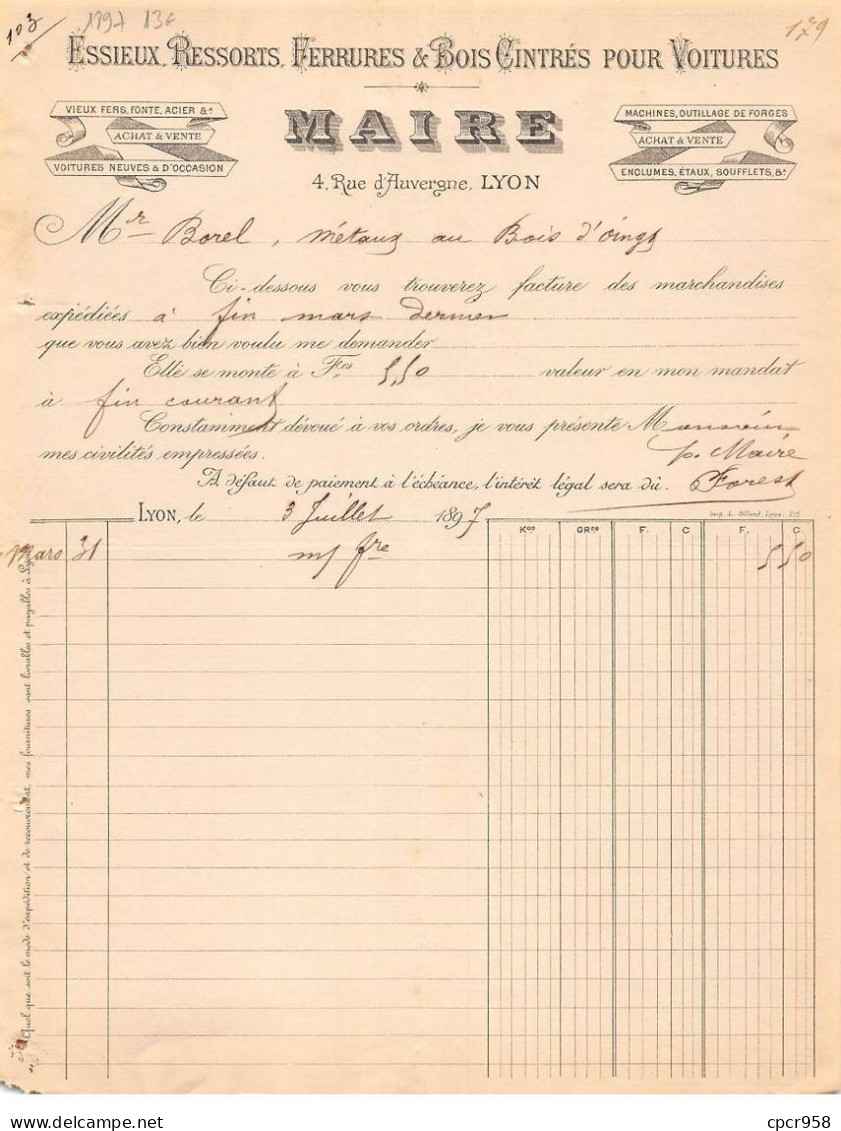 103
1897 13c
179
ESSIEUX, RESSORTS, FERRURES & BOIS CINTRÉS POUR VOITURES
VIEUX FERS, FONTE, ACIER &a
ACHAT & VENTE
VOITURES NEUVES & D'OCCASION
MAIRE
4, Rue d'Auvergne, LYON
MACHINES, OUTILLAGE DE FORGES
ACHAT & VENTE
ENCLUMES, ÉTAUX, SOUFFLETS, &a
Mr Borel, métaux au Bois d'oingt
Ci-dessous vous trouverez facture des marchandises
expédiées à fin mars dernier
que vous avez bien voulu me demander
Elle se monte à Fcs 5,50 valeur en mon mandat
à fin courant
Constamment dévoué à vos ordres, je vous présente Monsieur
mes civilités empressées.
p. Maire
A défaut de paiement à l'échéance, l'intérêt légal sera dû.
Forest
LYON, le 3 Juillet 1897
Kos GRes F. C F. C.
Mars 31 m/ fre 5 50
Quel que soit le mode d'expédition et de recouvrement, mes fournitures sont livrables et payables à Lyon
cpcr958